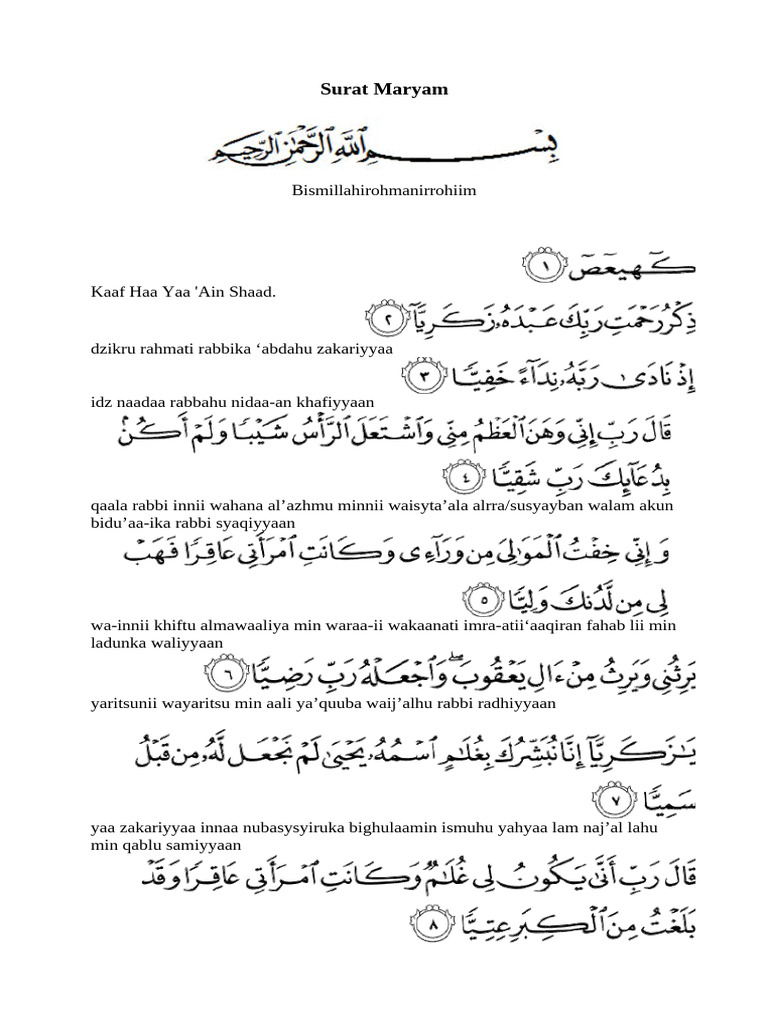 Surat Maryam
بِسْمِ ٱللَّهِ ٱلرَّحْمَٰنِ ٱلرَّحِيمِ
Bismillahirohmanirrohiim
كٓهيعٓصٓ ١
Kaaf Haa Yaa 'Ain Shaad.
ذِكْرُ رَحْمَتِ رَبِّكَ عَبْدَهُۥ زَكَرِيَّآ ٢
dzikru rahmati rabbika ‘abdahu zakariyyaa
إِذْ نَادَىٰ رَبَّهُۥ نِدَآءً خَفِيًّا ٣
idz naadaa rabbahu nidaa-an khafiyyaan
قَالَ رَبِّ إِنِّى وَهَنَ ٱلْعَظْمُ مِنِّى وَٱشْتَعَلَ ٱلرَّأْسُ شَيْبًا وَلَمْ أَكُنۢ
بِدُعَآئِكَ رَبِّ شَقِيًّا ٤
qaala rabbi innii wahana al’azhmu minnii waisyta’ala alrra/susyayban walam akun
bidu’aa-ika rabbi syaqiyyaan
وَإِنِّى خِفْتُ ٱلْمَوَٰلِىَ مِن وَرَآءِى وَكَانَتِ ٱمْرَأَتِى عَاقِرًا فَهَبْ
لِى مِن لَّدُنكَ وَلِيًّا ٥
wa-innii khiftu almawaaliya min waraa-ii wakaanati imra-atii‘aaqiran fahab lii min
ladunka waliyyaan
يَرِثُنِى وَيَرِثُ مِنْ ءَالِ يَعْقُوبَ ۖ وَٱجْعَلْهُ رَبِّ رَضِيًّا ٦
yaritsunii wayaritsu min aali ya’quuba waij’alhu rabbi radhiyyaan
يَٰزَكَرِيَّآ إِنَّا نُبَشِّرُكَ بِغُلَٰمٍ ٱسْمُهُۥ يَحْيَىٰ لَمْ نَجْعَل لَّهُۥ مِن قَبْلُ
سَمِيًّا ٧
yaa zakariyyaa innaa nubasysyiruka bighulaamin ismuhu yahyaa lam naj’al lahu
min qablu samiyyaan
قَالَ رَبِّ أَنَّىٰ يَكُونُ لِى غُلَٰمٌ وَكَانَتِ ٱمْرَأَتِى عَاقِرًا وَقَدْ
بَلَغْتُ مِنَ ٱلْكِبَرِ عِتِيًّا ٨